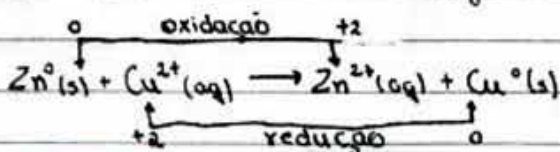 0 oxidação +2
Zn⁰(s) + Cu²⁺(aq) → Zn²⁺(aq) + Cu⁰(s)
+2 redução 0